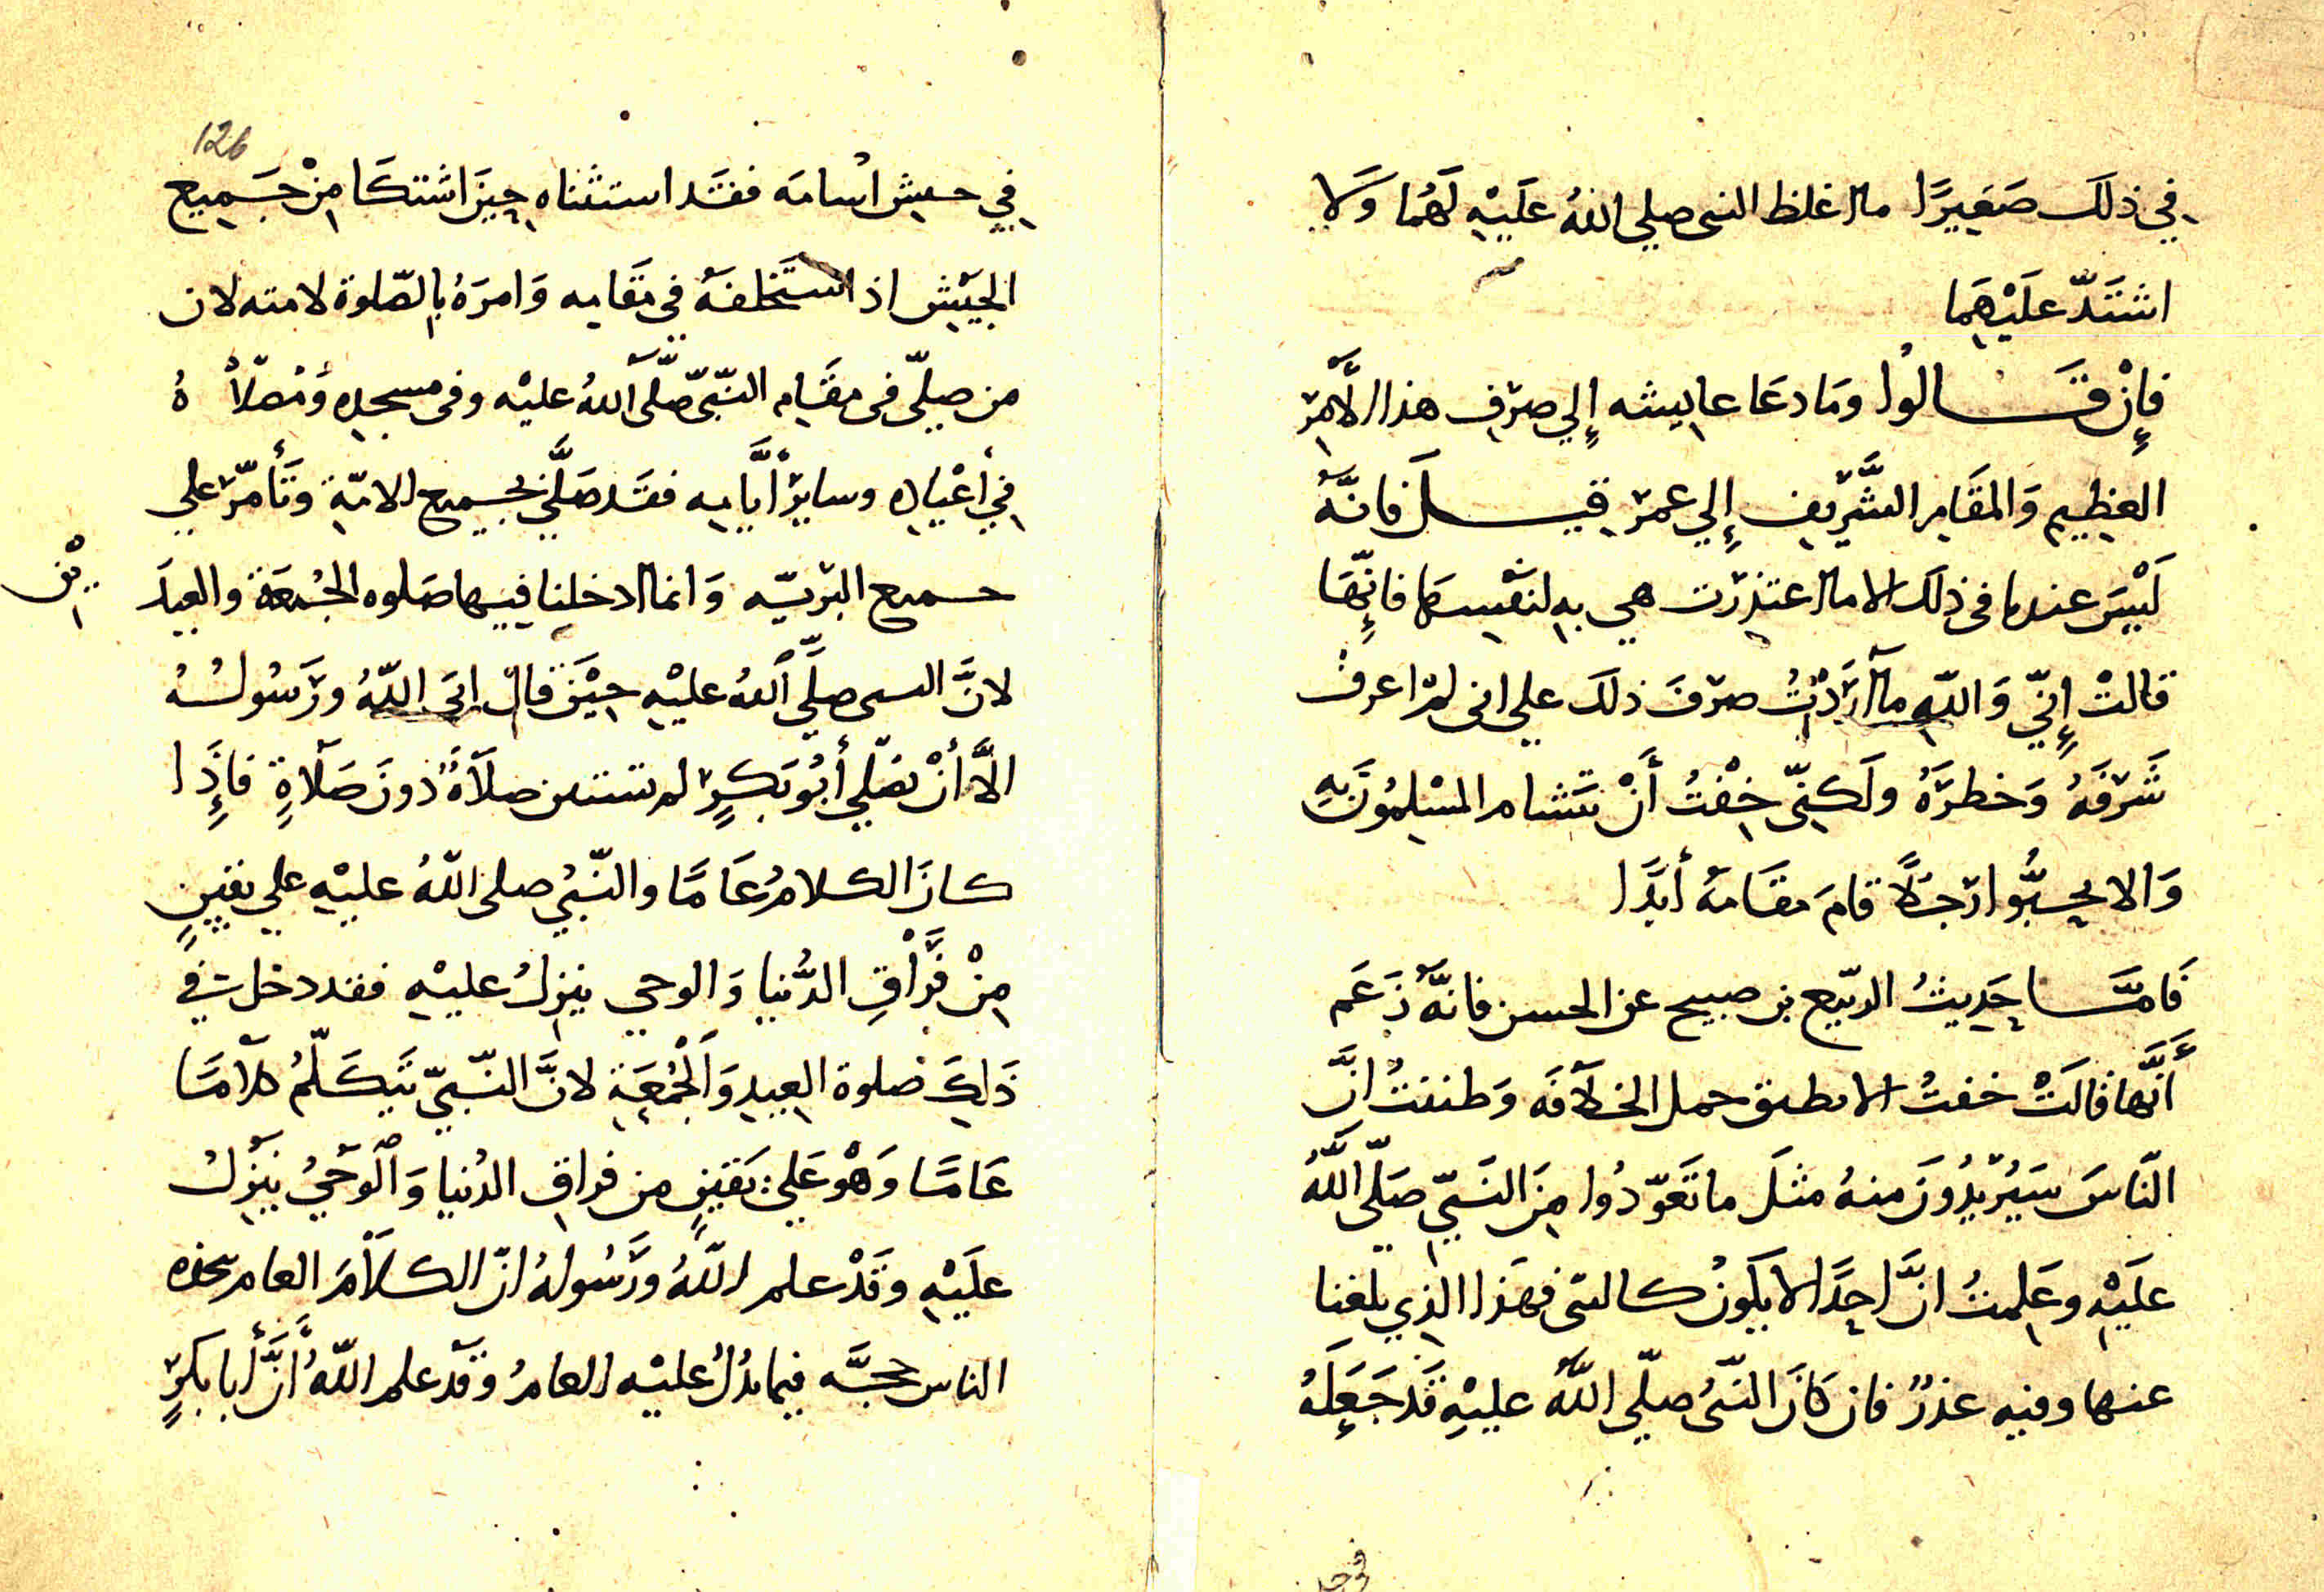 في ذلك صَغِيرًا ما اغلظ النبي صلي اللهُ عَلَيْهِ لَهُمَا وَلا
اشتَدّ عَلَيْهِمَا
فإنْ قَالوُا ومَا دعَا عايشه إلي صرْفِ هذا الأَمْر
العظيم وَالمقَامِ الشَّرِيفِ إِلي عمرَ قيلَ فانهُ
لَيْسَ عندنا في ذلكَ الا ما اعتذرَت هي بهِ لنَفْسِهَا فانِّهَا
قالتْ إِنِّي وَاللهِ ما أرَدْتُ صرْفَ ذلكَ علي اني لم اعرفْ
شَرَفَهُ وَخطرَهُ ولَكِنّي خِفْتُ أَنْ يَتَشام المسْلِمُونَ بِهِ
وَالا يحِبُّوا رَجُلًا قامَ مقَامَهُ أبَدًا
فَامَّا حَدِيثُ الربّيع بن صبيح عن الحسن فانهُ زعَم
أَنَّها قالَتْ خفتُ الا يطيق حمل الخلَافَه وَظننتُ انَّ
النّاسَ سَيُرِيدُونَ منهُ مثلَ ما تعَوّدُوا مِنَ النَبيّ صَلّي اللَّهُ
علَيْهِ وعَلِمتُ انَّ احَدًا لا يكَونُ كالنبي فهَذا الذِي بلغنا
عنها وفيهِ عذرٌ فان كانَ النّبيُ صلّي اللَّهُ عليْهِ قَد جَعَلَهُ
في جيـ
126
في جيش اُسامَه فقَد استثناه حِينَ اشتكَا مِنْ جَميع
الجيْش اذ استَخلفهُ في مقَامِه وَامرَهُ بالصّلوة لامته لان
من صلّي في مقَامِ النّبيّ صَلّى اللهُ عليْه وفي مسجدِهِ وَمُصَلاهُ
في أعْيادِهِ وسايرِ أيَّامِه فقَد صَلَّي بجميع الامّةِ وتَأمّرَ علي
جميع البَرِيّه وَانما ادخلنا فيها صَلوه الجُمعَة والعيدَيْن
لانَّ النبي صلَّي اللهُ عليْهِ حِيْنَ قالَ ابَى اللّهُ ورَسُولُهُ
الَّا أنْ يصَلّي أبُو بَكرٍ لم يستثن صلَاةً دونَ صَلَاةٍ فإِذَا
كانَ الكلامُ عَامًا والنّبيُ صلى اللهُ عليْهِ علي يقينٍ
مِنْ فرَاقِ الدُّنيا وَالوحي ينزِلُ عليْهِ فقد دخلت في
ذَلِكَ صلوة العيدِ وَالْجُمْعَةِ لانَّ النّبيّ يَتَكَلّمُ كلَامًا
عَامًا وَهْوَ عَلي يَقينٍ من فراقِ الدُنيا وَالوَحْيُ يَنْزِلُ
علَيْهِ وقَدْ علم اللَّهُ ورَسُولهُ انّ الكلَامَ العام يتخذه
الناس حجَّه فيما يدُلُ عليْه العامُ وقَدْ علم اللّهُ أنَّ أبا بكرٍ